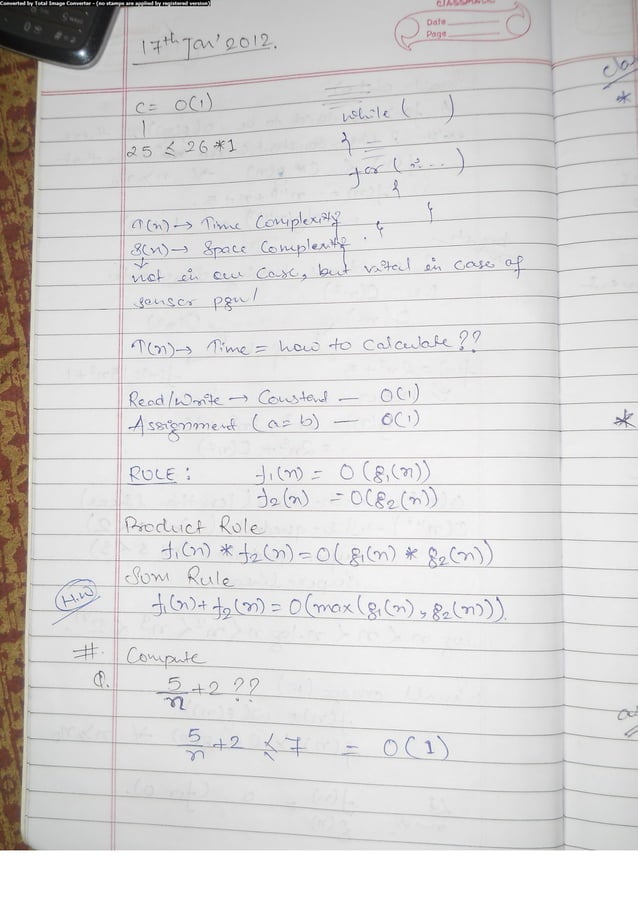 Converted by Total Image Convertor - (no stamps are applied by registered version)
CLASSMATE
Date
Page
17th Jan' 2012.
C = O(1)
25 ≤ 26 * 1
while ( )
{
for ( ... )
{
}
}
T(n) → Time Complexity
S(n) → Space Complexity.
↓
not in our case, but vital in case of
sensor pgm!
T(n) → Time = how to calculate??
Read/Write → Constant — O(1)
Assignment (a=b) — O(1)
RULE: f₁(n) = O(g₁(n))
f₂(n) = O(g₂(n))
Product Rule
f₁(n) * f₂(n) = O(g₁(n) * g₂(n))
Sum Rule
H.W
f₁(n) + f₂(n) = O(max(g₁(n), g₂(n))).
#. Compute
Q. 5/n + 2 ??
5/n + 2 ≤ 7 = O(1)